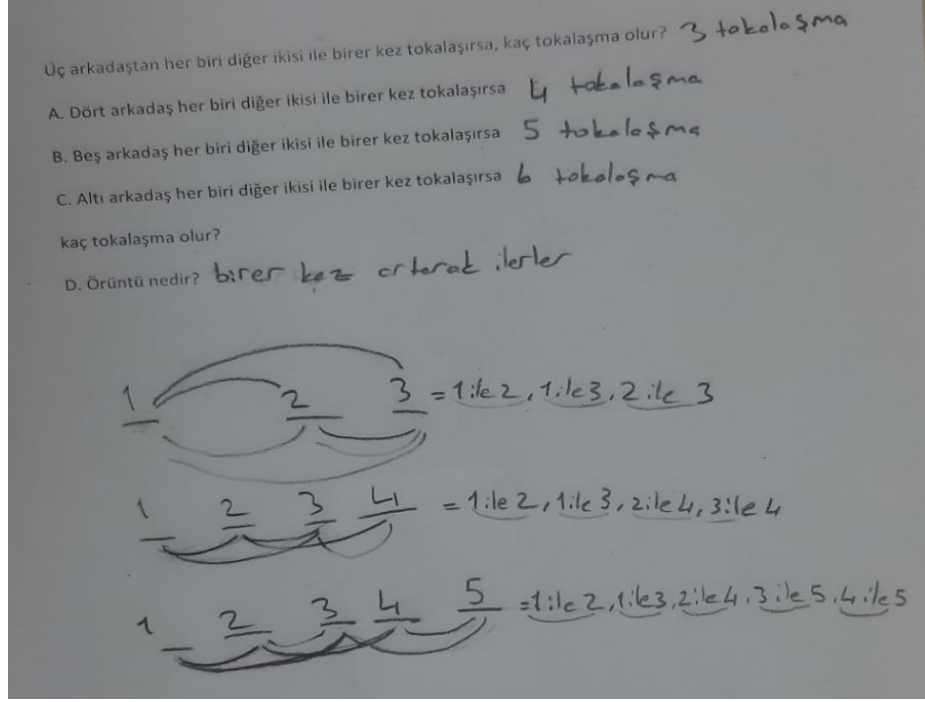 Üç arkadaştan her biri diğer ikisi ile birer kez tokalaşırsa, kaç tokalaşma olur? 3 tokalaşma
A. Dört arkadaş her biri diğer ikisi ile birer kez tokalaşırsa 4 tokalaşma
B. Beş arkadaş her biri diğer ikisi ile birer kez tokalaşırsa 5 tokalaşma
C. Altı arkadaş her biri diğer ikisi ile birer kez tokalaşırsa 6 tokalaşma
kaç tokalaşma olur?
D. Örüntü nedir? birer kez artarak ilerler
1 2 3 = 1 ile 2, 1 ile 3, 2 ile 3
1 2 3 4 = 1 ile 2, 1 ile 3, 2 ile 4, 3 ile 4
1 2 3 4 5 = 1 ile 2, 1 ile 3, 2 ile 4, 3 ile 5, 4 ile 5